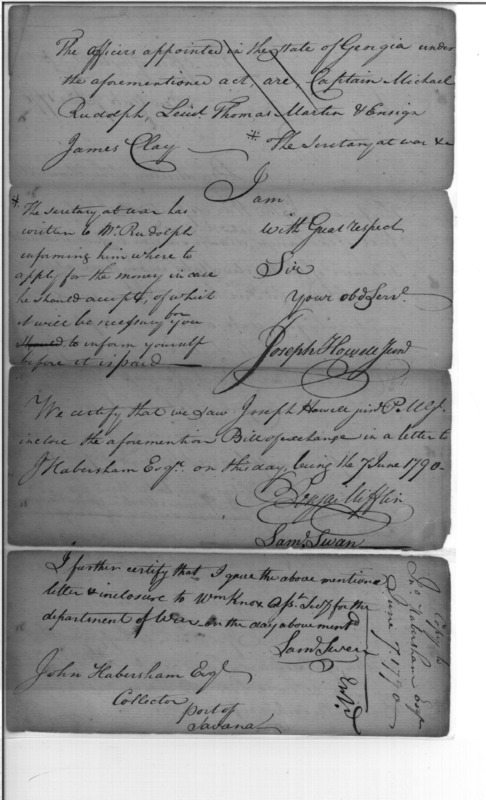 The officers appointed in the state of Georgia under
the aforementioned act, are, Captain Michael
Rudolph, Lieut Thomas Martin & Ensign
James Clay
* The Secretary at war &c
I am
with Great respect
Sir
Your obd Servt
Joseph Howell Junr
* The Secretary at war has
written to Mr. Rudolph
informing him where to
apply for the money in case
he should accept, of which
it will be necessary for you
to inform yourself
before it is paid
We certify that we saw Joseph Howell junr P.M.Gl.
inclose the aforemention Bill of exchange in a letter to
Jn Habersham Esqr. on this day, being the 7 June 1790
Benja Mifflin
Saml. Swan
I further certify that I gave the above mentioned
letter & inclosure to Wm Knox Asst. Secy for the
department of War on the day above ment
Saml Swan
John Habersham Esqr
Collector
port of
Savana
Copy to
Jno. Habersham Esqr
June 7. 1790